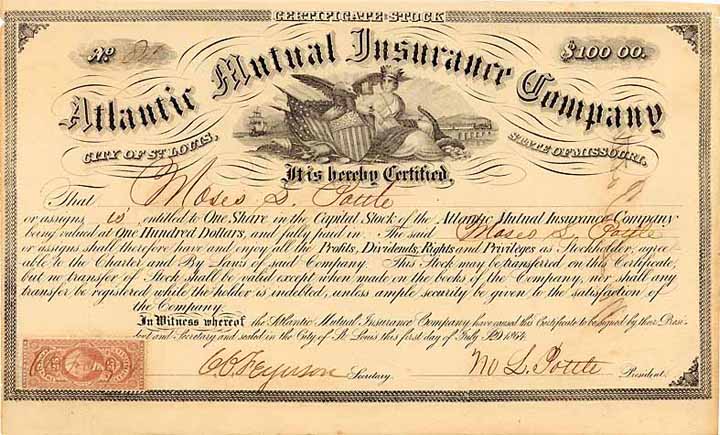 CERTIFICATE STOCK
No.
$100 00.
Atlantic Mutual Insurance Company
CITY OF ST LOUIS, STATE OF MISSOURI.
It is hereby Certified,
That Moses L. Pottle
or assigns is entitled to One Share in the Capital Stock of the Atlantic Mutual Insurance Company
being valued at One Hundred Dollars, and fully paid in. The said Moses L. Pottle
or assigns shall therefore have and enjoy all the Profits, Dividends, Rights and Privileges as Stockholder, agree
able to the Charter and By Laws of said Company. This Stock may be transferred on this Certificate,
but no transfer of Stock shall be valid except when made on the books of the Company, nor shall any
transfer be registered while the holder is indebted, unless ample security be given to the satisfaction of
the Company.
In Witness whereof the Atlantic Mutual Insurance Company have caused this Certificate to be signed by their Presi-
dent and Secretary and sealed in the City of St Louis this first day of July A.D. 1864.
Secretary.
M L Pottle President.